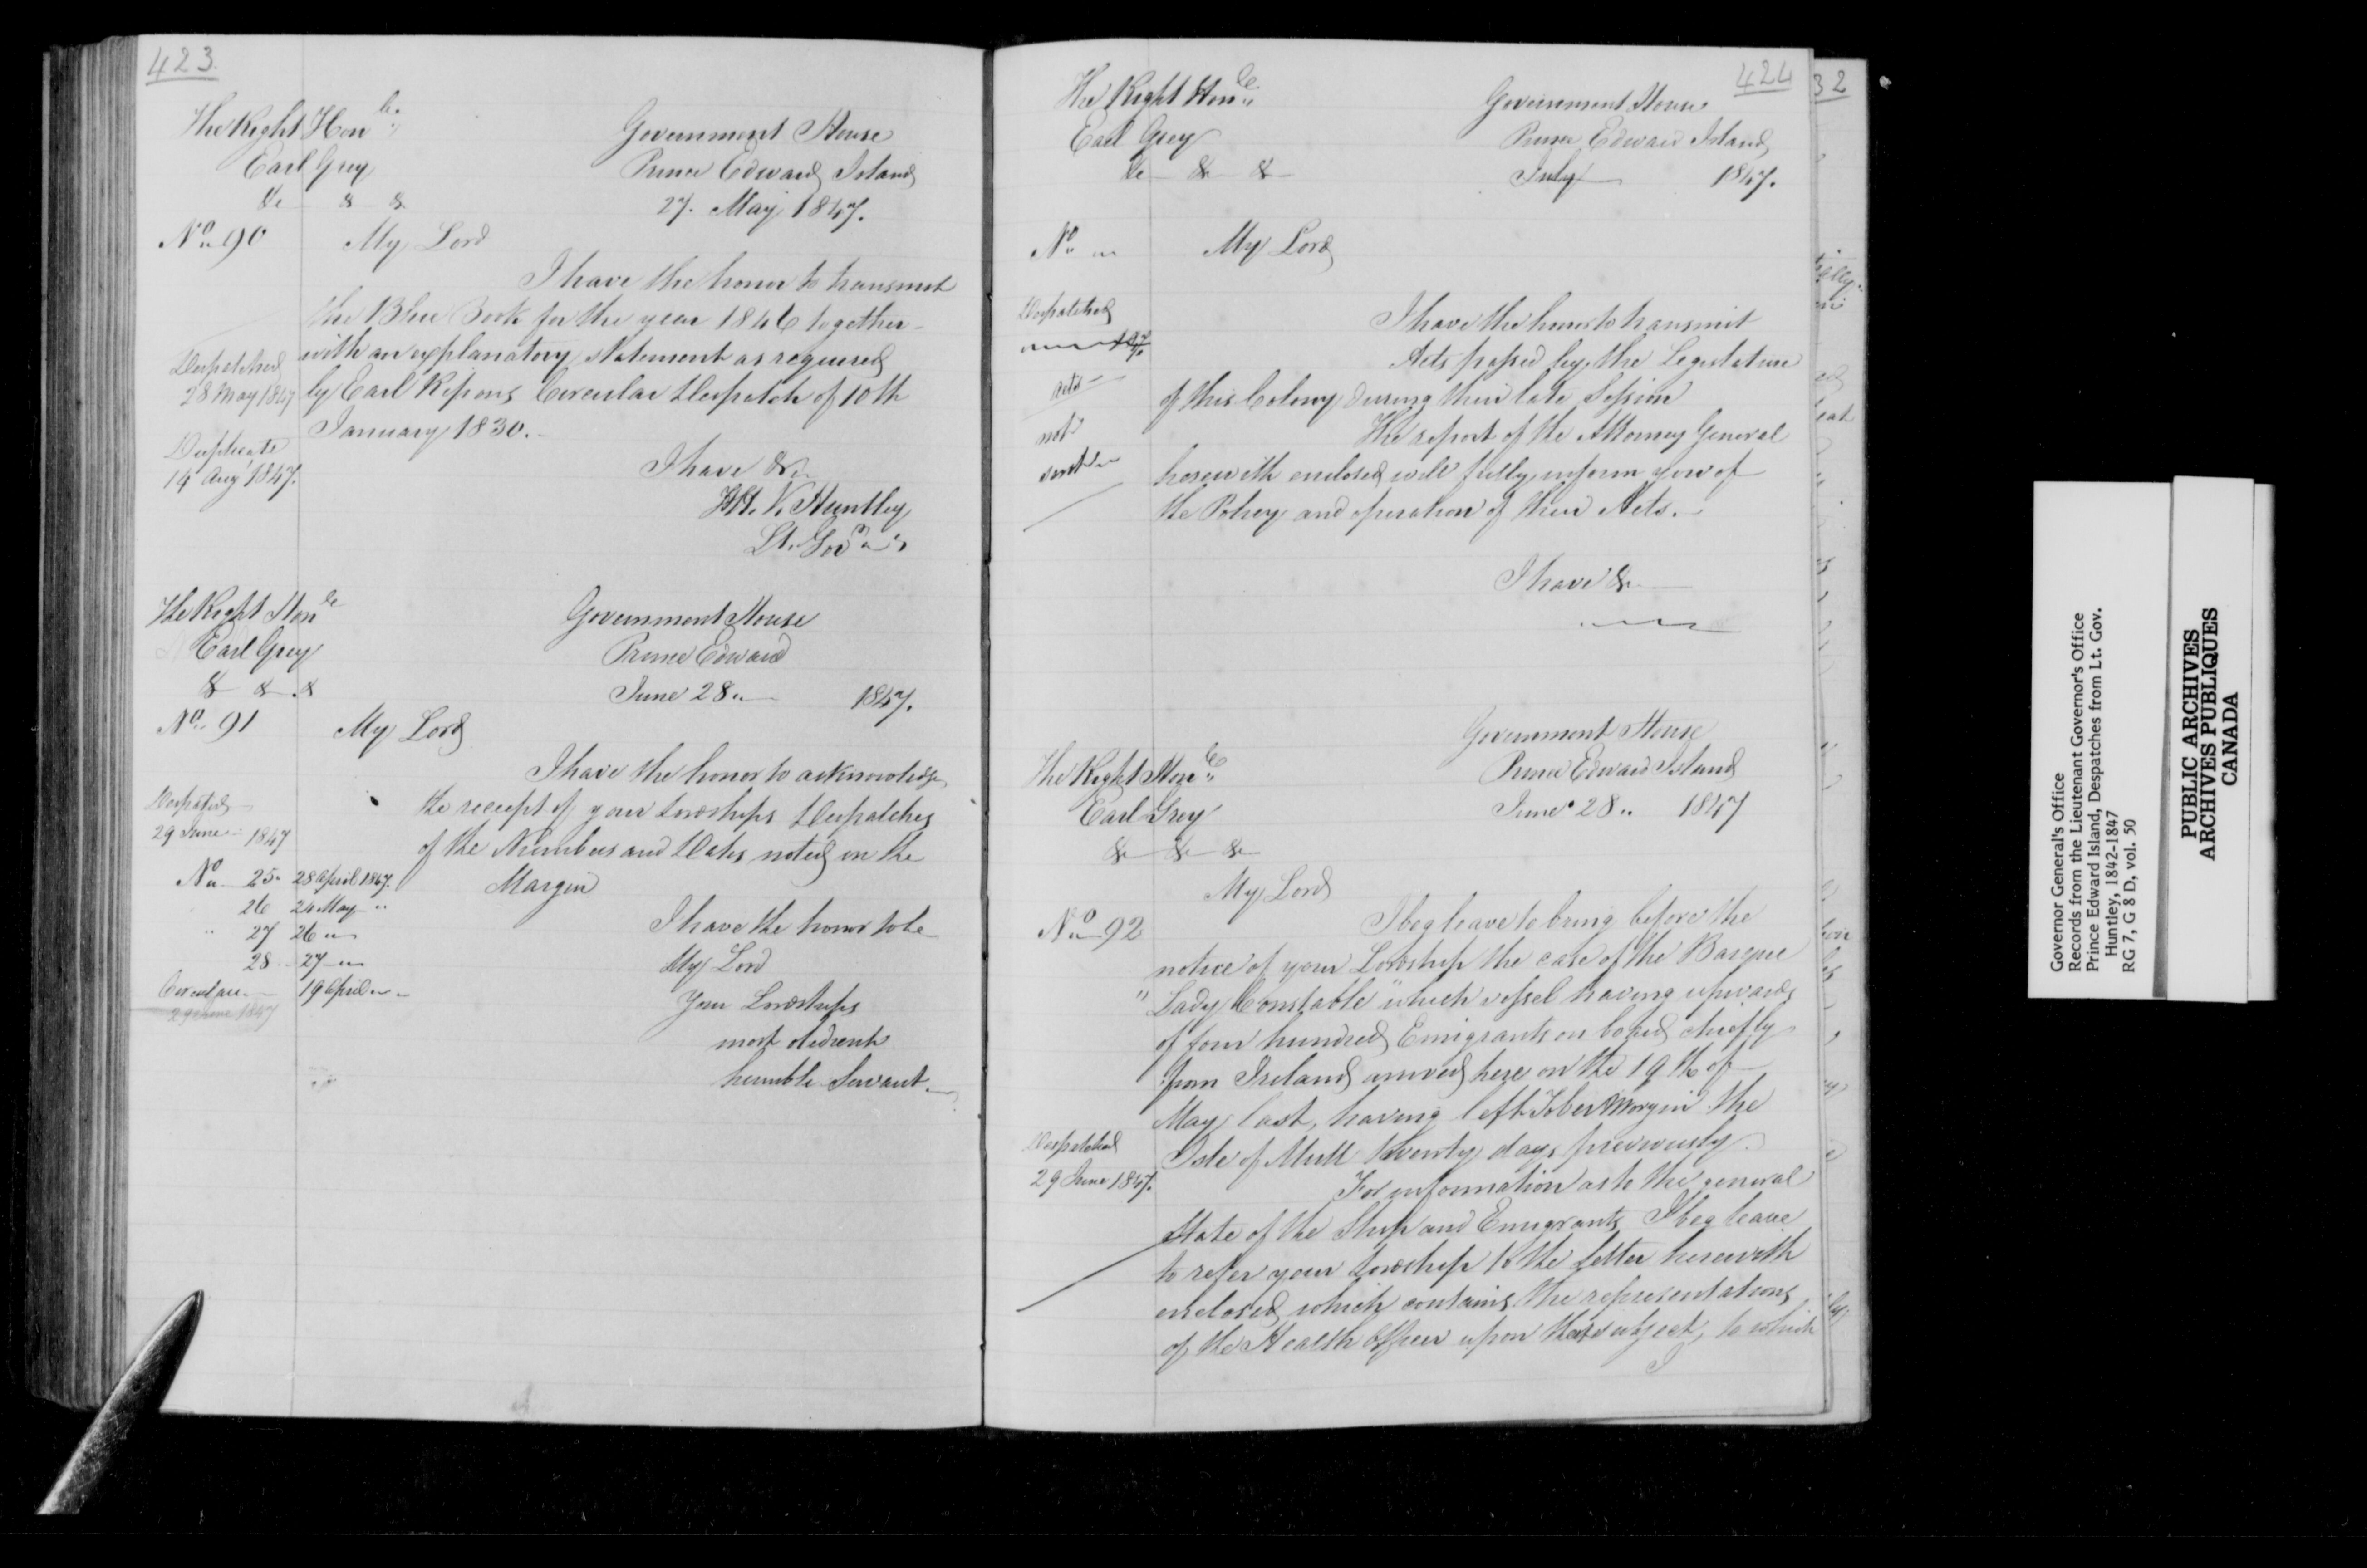 423.
The Right Honble
Earl Grey
&c & &
Government House
Prince Edward Island
27. May 1847.
No. 90
My Lord
I have the honor to transmit
the Blue Book for the year 1846 together
with an explanatory statement as required
by Earl Ripons Circular Despatch of 10th
January 1830.
Despatched
28 May 1847
Duplicate
14 Augt 1847.
I have &c
H. V. Huntley
Lt. Govr
The Right Honble
Earl Grey
& & &
Government House
Prince Edward
June 28 1847.
No. 91
My Lord
I have the honor to acknowledge
the receipt of your Lordships Despatches
of the Numbers and Dates noted in the
Margin
Despatched
29 June 1847
No. 25 28 April 1847.
26 24 May "
" 27 26 "
28 27 "
Circular 19 April "
29 June 1847
I have the honor to be
My Lord
Your Lordships
most obedient
humble Servant.
424
The Right Honble
Earl Grey
&c & &
Government House
Prince Edward Island
July 1847.
No.
My Lord
Despatched
acts
not
sent
I have the honor to transmit
Acts passed by the Legislature
of this Colony during their late Session
The report of the Attorney General
herewith enclosed will fully inform you of
the Policy and operation of their Acts.
I have &c
Government House
Prince Edward Island
June 28 " 1847
The Right Honble
Earl Grey
&c &c &c
My Lord
No. 92
I beg leave to bring before the
notice of your Lordship the case of the Barque
"Lady Constable" which vessel having upwards
of four hundred Emigrants on board chiefly
from Ireland arrived here on the 19th of
May last, having left Tobermory in the
Isle of Mull twenty days previously.
Despatched
29 June 1847.
For information as to the general
state of the Ship and Emigrants I beg leave
to refer your Lordship to the letter herewith
enclosed, which contains the representations
of the Health Officer upon that subject, to which
I
32
Governor General's Office
Records from the Lieutenant Governor's Office
Prince Edward Island, Despatches from Lt. Gov.
Huntley, 1842-1847
RG 7, G 8 D, vol. 50
PUBLIC ARCHIVES
ARCHIVES PUBLIQUES
CANADA